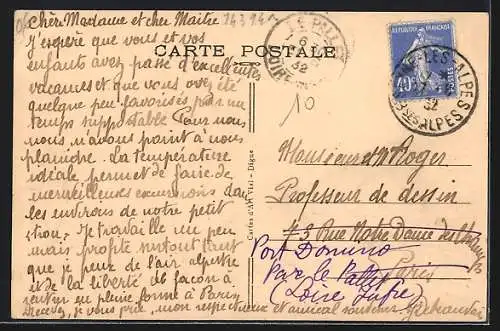 Chère Madame et cher Maitre
J'espère que vous et vos
enfants avez passé d'excellentes
vacances et que vous avez été
quelque peu favorisés par un
temps supportable Pour nous
nous n'avons point à nous
plaindre. La température
idéale permet de faire de
merveilleuses excursions dans
les environs de notre petit
station. Je travaille un peu
mais profite surtout tant
que je peux de l'air alpestre
et de la liberté de façon à
rentrer en pleine forme à Paris
je vous prie, mon respectueux et amical souvenir
CARTE POSTALE
LE PALLET
LOIRE
32
10
40c
POSTES
ALPES
Bses ALPES
32
Cartes d'Art
Digne
Monsieur Roger
Professeur de dessin
73 Rue Notre Dame des Champs
Paris
Port Domino
Par le Pallet
(Loire Infre)